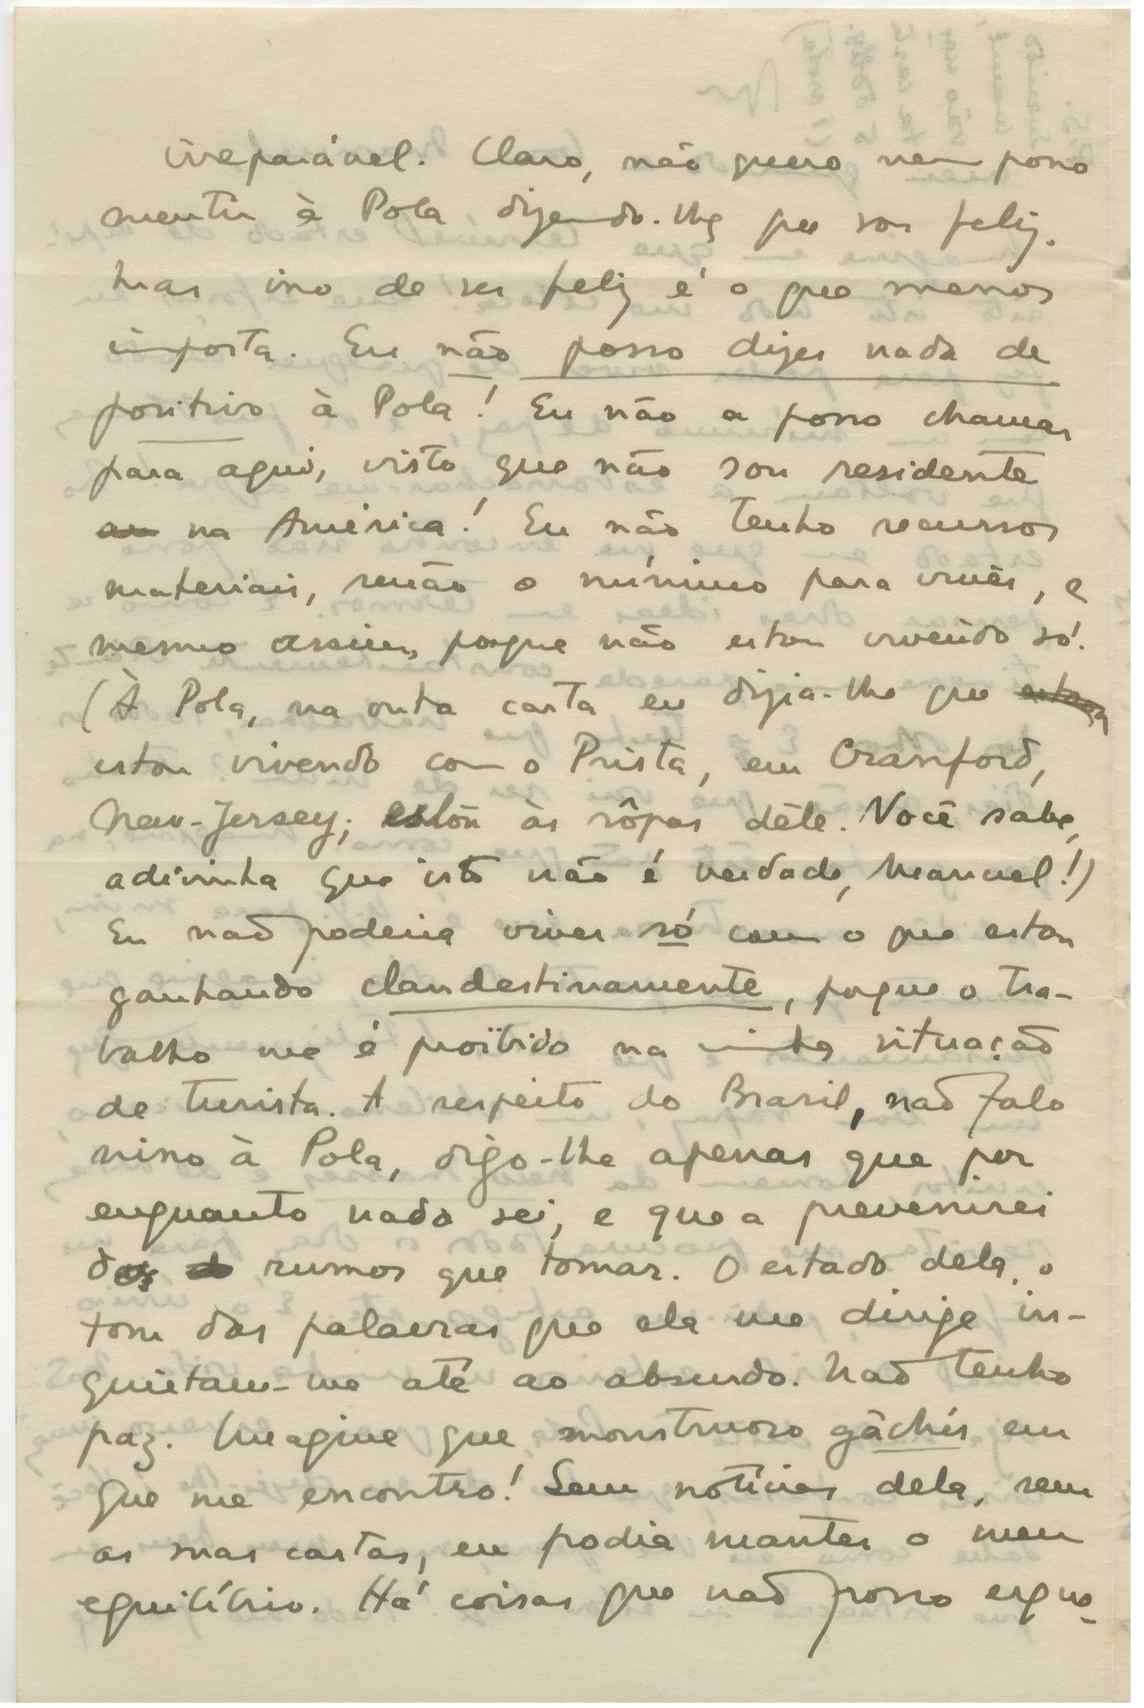 irreparável. Claro, não quero nem posso
mentir à Pola dizendo-lhe que sou feliz.
Mas isso de ser feliz é o que menos
importa. Eu não posso dizer nada de
positivo à Pola! Eu não a posso chamar
para aqui, visto que não sou residente
na América! Eu não tenho recursos
materiais, senão o mínimo para viver, e
mesmo assim, porque não estou vivendo só.
(À Pola, na outra carta eu dizia-lhe que estava
estou vivendo com o Prista, em Cranford,
New-Jersey; estou às sôpas dêle. Você sabe,
adivinha que isto não é verdade, Manuel!)
Eu não poderia viver só com o que estou
ganhando clandestinamente, porque o tra-
balho me é proïbido na minha situação
de turista. A respeito do Brasil, não falo
nisso à Pola, digo-lhe apenas que por
enquanto nada sei, e que a prevenirei
dos rumos que tomar. O estado dela, o
tom das palavras que ela me dirige in-
quietam-me até ao absurdo. Não tenho
paz. Imagine que monstruoso gâchis em
que me encontro! Sem notícias dela, sem
as suas cartas, eu podia manter o meu
equilíbrio. Há coisas que não posso esque-